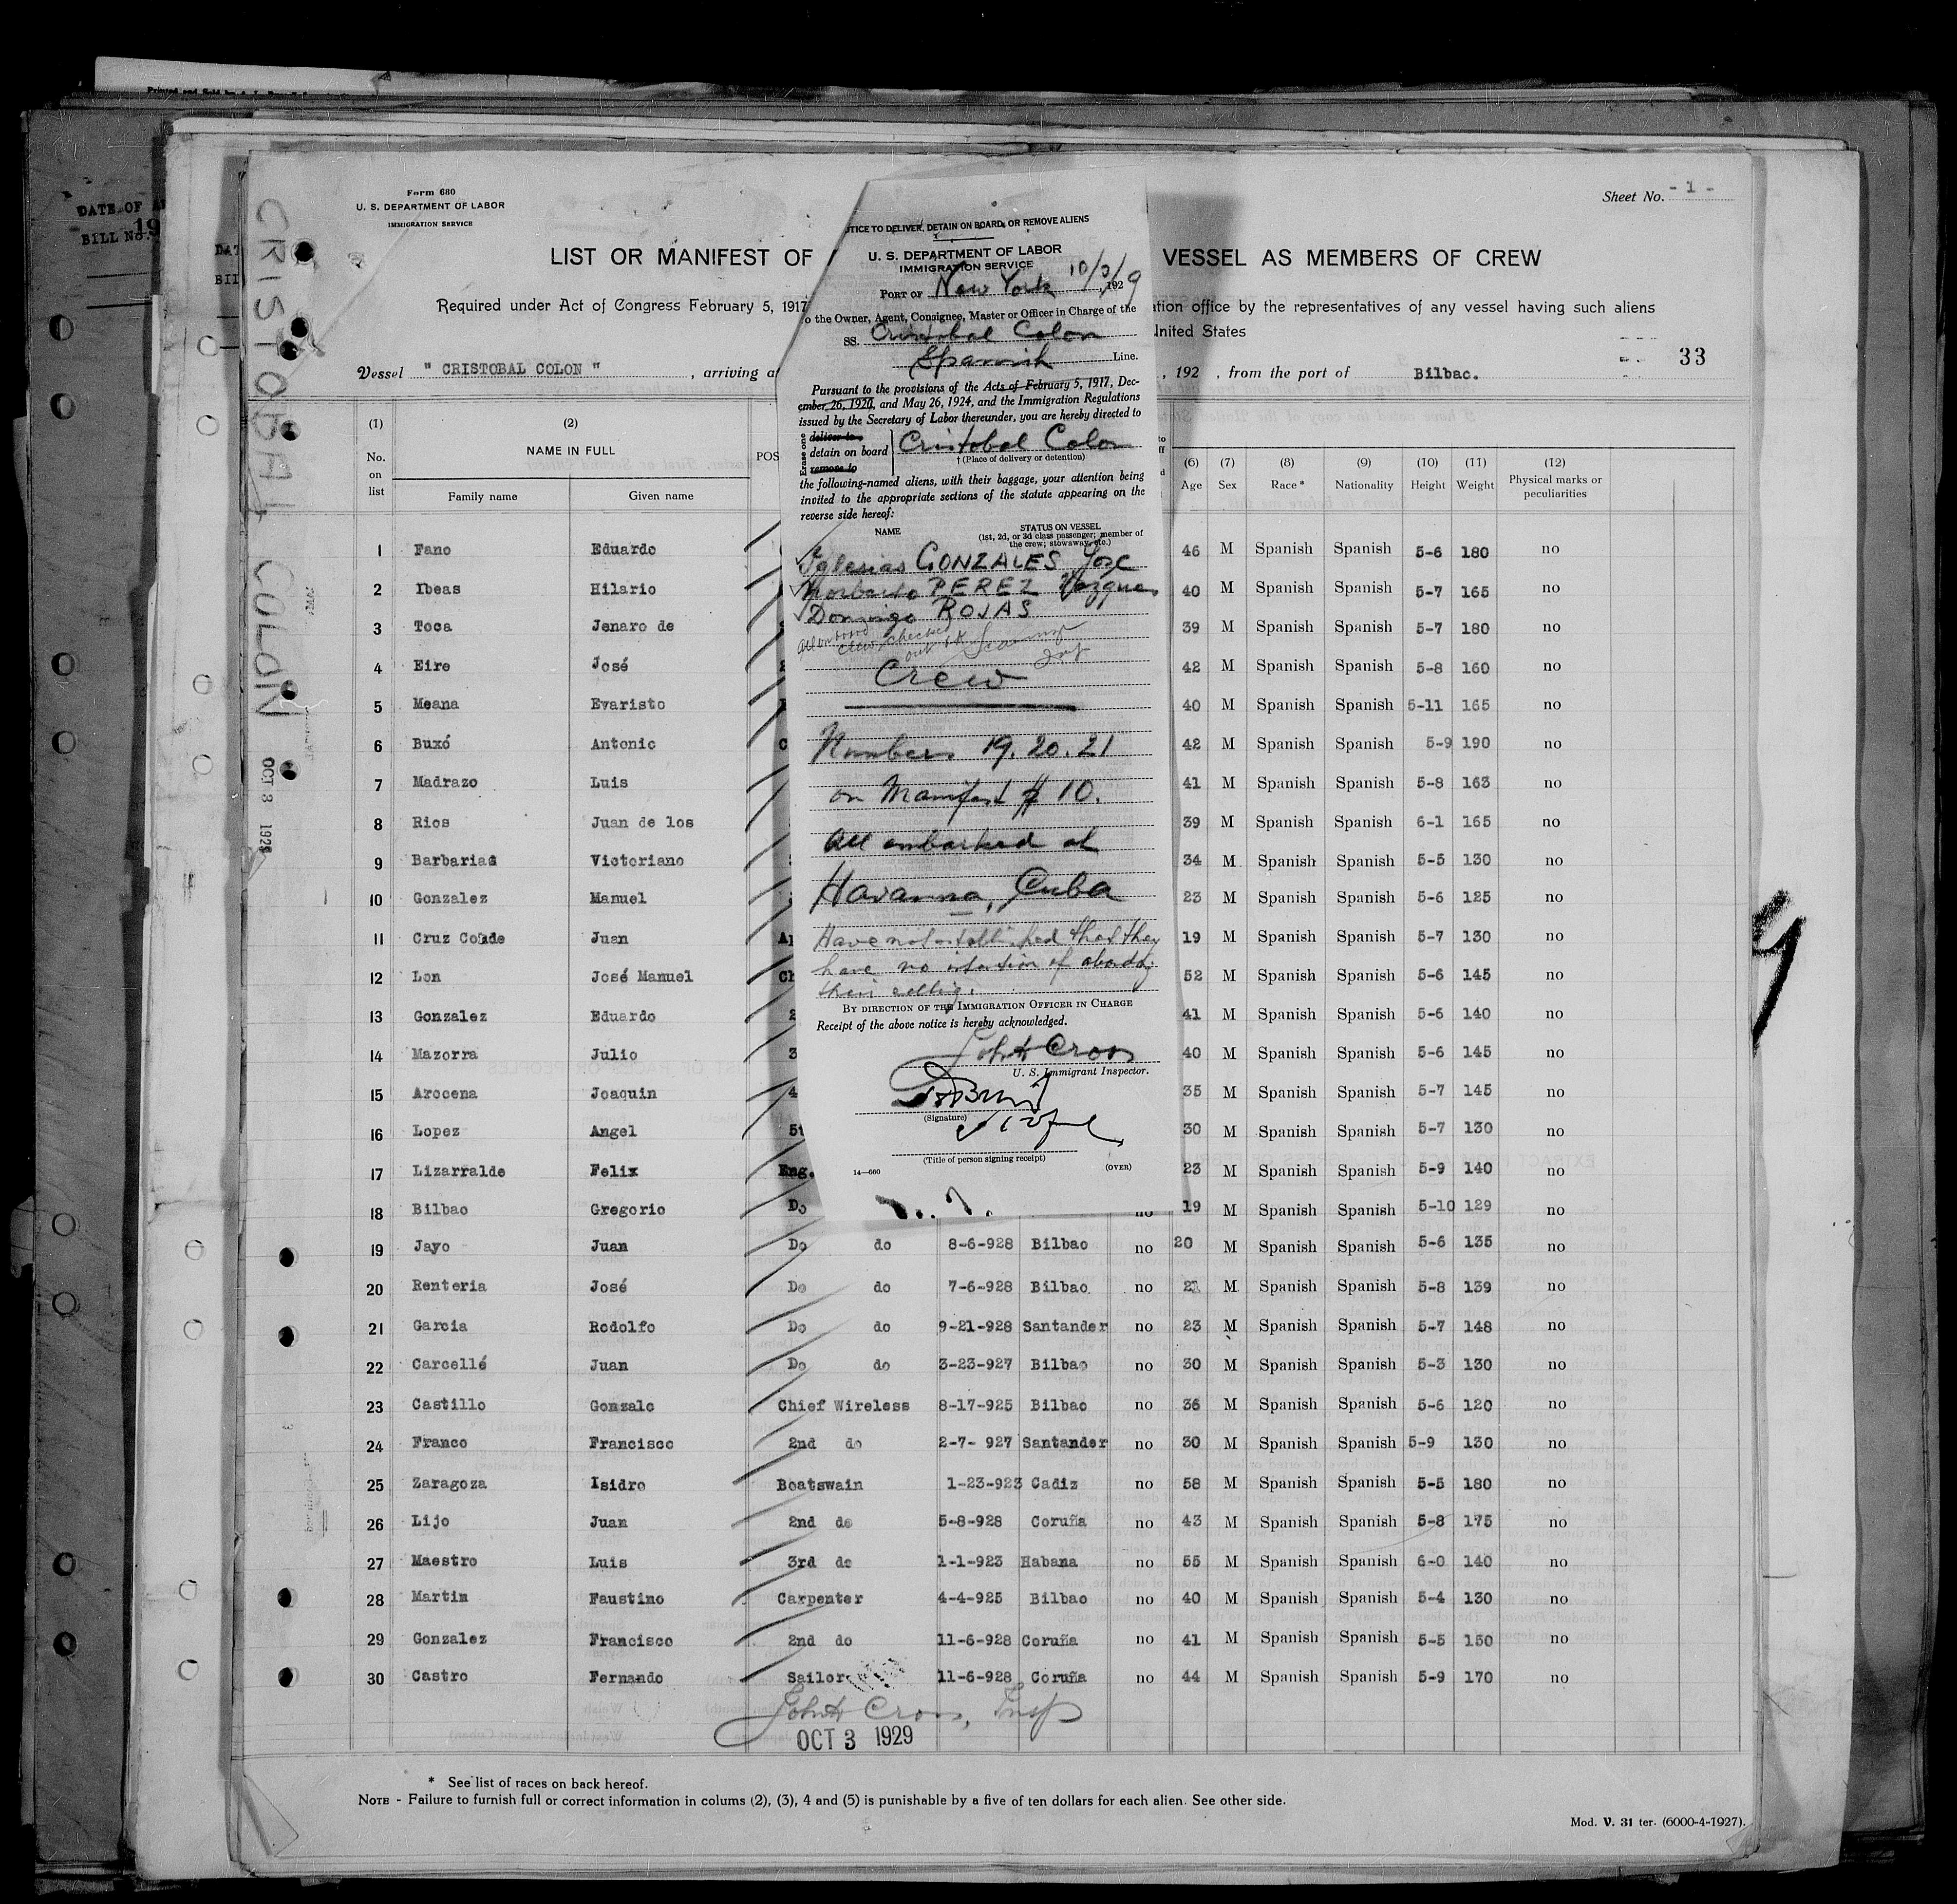 DATE OF
19
BILL No.
Form 680
U. S. DEPARTMENT OF LABOR
IMMIGRATION SERVICE
Sheet No. - 1 -
LIST OR MANIFEST OF
VESSEL AS MEMBERS OF CREW
Required under Act of Congress February 5, 1917
ation office by the representatives of any vessel having such aliens
United States
33
Vessel " CRISTOBAL COLON " , arriving a
, 192 , from the port of Bilbao.
CRISTOBAL COLON
OCT 3 1929
(1) (2) (6) (7) (8) (9) (10) (11) (12)
No. on list NAME IN FULL POS Age Sex Race * Nationality Height Weight Physical marks or peculiarities
Family name Given name
1 Fano Eduardo 46 M Spanish Spanish 5-6 180 no
2 Ibeas Hilario 40 M Spanish Spanish 5-7 165 no
3 Toca Jenaro de 39 M Spanish Spanish 5-7 180 no
4 Eire José 42 M Spanish Spanish 5-8 160 no
5 Meana Evaristo 40 M Spanish Spanish 5-11 165 no
6 Buxó Antonio 42 M Spanish Spanish 5-9 190 no
7 Madrazo Luis 41 M Spanish Spanish 5-8 163 no
8 Rios Juan de los 39 M Spanish Spanish 6-1 165 no
9 Barbarias Victoriano 34 M Spanish Spanish 5-5 130 no
10 Gonzalez Manuel 23 M Spanish Spanish 5-6 125 no
11 Cruz Conde Juan 19 M Spanish Spanish 5-7 130 no
12 Lon José Manuel 52 M Spanish Spanish 5-6 145 no
13 Gonzalez Eduardo 2 41 M Spanish Spanish 5-6 140 no
14 Mazorra Julio 3 40 M Spanish Spanish 5-6 145 no
15 Arocena Joaquin 4 35 M Spanish Spanish 5-7 145 no
16 Lopez Angel 5t 30 M Spanish Spanish 5-7 130 no
17 Lizarralde Felix Eng. 23 M Spanish Spanish 5-9 140 no
18 Bilbao Gregorio Do no 19 M Spanish Spanish 5-10 129 no
19 Jayo Juan Do do 8-6-928 Bilbao no 20 M Spanish Spanish 5-6 135 no
20 Renteria José Do do 7-6-928 Bilbao no 21 M Spanish Spanish 5-8 139 no
21 Garcia Rodolfo Do do 9-21-928 Santander no 23 M Spanish Spanish 5-7 148 no
22 Carcellé Juan Do do 3-23-927 Bilbao no 30 M Spanish Spanish 5-3 130 no
23 Castillo Gonzalo Chief Wireless 8-17-925 Bilbao no 36 M Spanish Spanish 5-6 120 no
24 Franco Francisco 2nd do 2-7- 927 Santander no 30 M Spanish Spanish 5-9 130 no
25 Zaragoza Isidro Boatswain 1-23-923 Cadiz no 58 M Spanish Spanish 5-5 180 no
26 Lijo Juan 2nd do 5-8-928 Coruña no 43 M Spanish Spanish 5-8 175 no
27 Maestro Luis 3rd do 1-1-923 Habana no 55 M Spanish Spanish 6-0 140 no
28 Martin Faustino Carpenter 4-4-925 Bilbao no 40 M Spanish Spanish 5-4 130 no
29 Gonzalez Francisco 2nd do 11-6-928 Coruña no 41 M Spanish Spanish 5-5 150 no
30 Castro Fernando Sailor 11-6-928 Coruña no 44 M Spanish Spanish 5-9 170 no
John A Cross, Insp
OCT 3 1929
* See list of races on back hereof.
NOTE - Failure to furnish full or correct information in colums (2), (3), 4 and (5) is punishable by a five of ten dollars for each alien. See other side.
Mod. V. 31 ter. (6000-4-1927).
OTICE TO DELIVER, DETAIN ON BOARD, OR REMOVE ALIENS
U. S. DEPARTMENT OF LABOR
IMMIGRATION SERVICE
PORT OF New York 10/3/ 1929
o the Owner, Agent, Consignee, Master or Officer in Charge of the
SS. Cristobal Colon
Spanish Line.
Pursuant to the provisions of the Acts of February 5, 1917, Dec-
ember 26, 1920, and May 26, 1924, and the Immigration Regulations
issued by the Secretary of Labor thereunder, you are hereby directed to
Erase one
deliver to
detain on board
remove to
Cristobal Colon
† (Place of delivery or detention)
the following-named aliens, with their baggage, your attention being
invited to the appropriate sections of the statute appearing on the
reverse side hereof:
NAME
STATUS ON VESSEL
(1st, 2d, or 3d class passenger; member of
the crew; stowaway, etc.)
Iglesias GONZALES Jose
Norberto PEREZ Vazquez
Domingo ROJAS
all on board
crew checked
out
Crew
Numbers 19. 20. 21
on Manifest # 10.
All embarked at
Havanna, Cuba
Have not established that they
have no intention of abandg.
their calling.
BY DIRECTION OF THE IMMIGRATION OFFICER IN CHARGE
Receipt of the above notice is hereby acknowledged.
John A Cross
U. S. Immigrant Inspector.
(Signature)
(Title of person signing receipt)
14—660
(OVER)